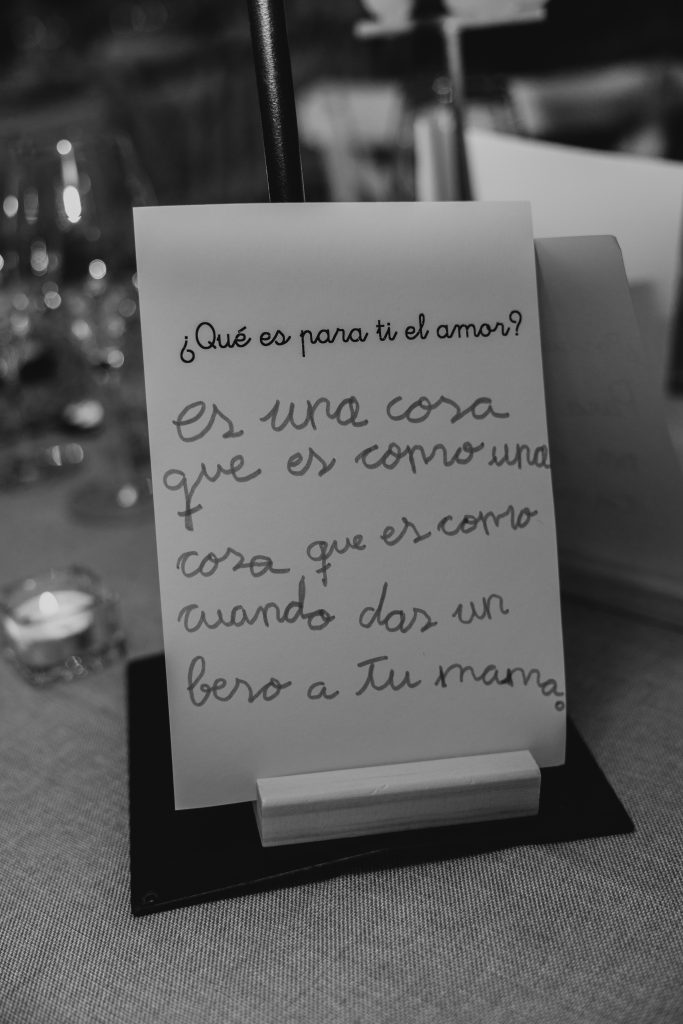 ¿Qué es para ti el amor?
es una cosa
que es como una
cosa que es como
cuando das un
beso a tu mama.